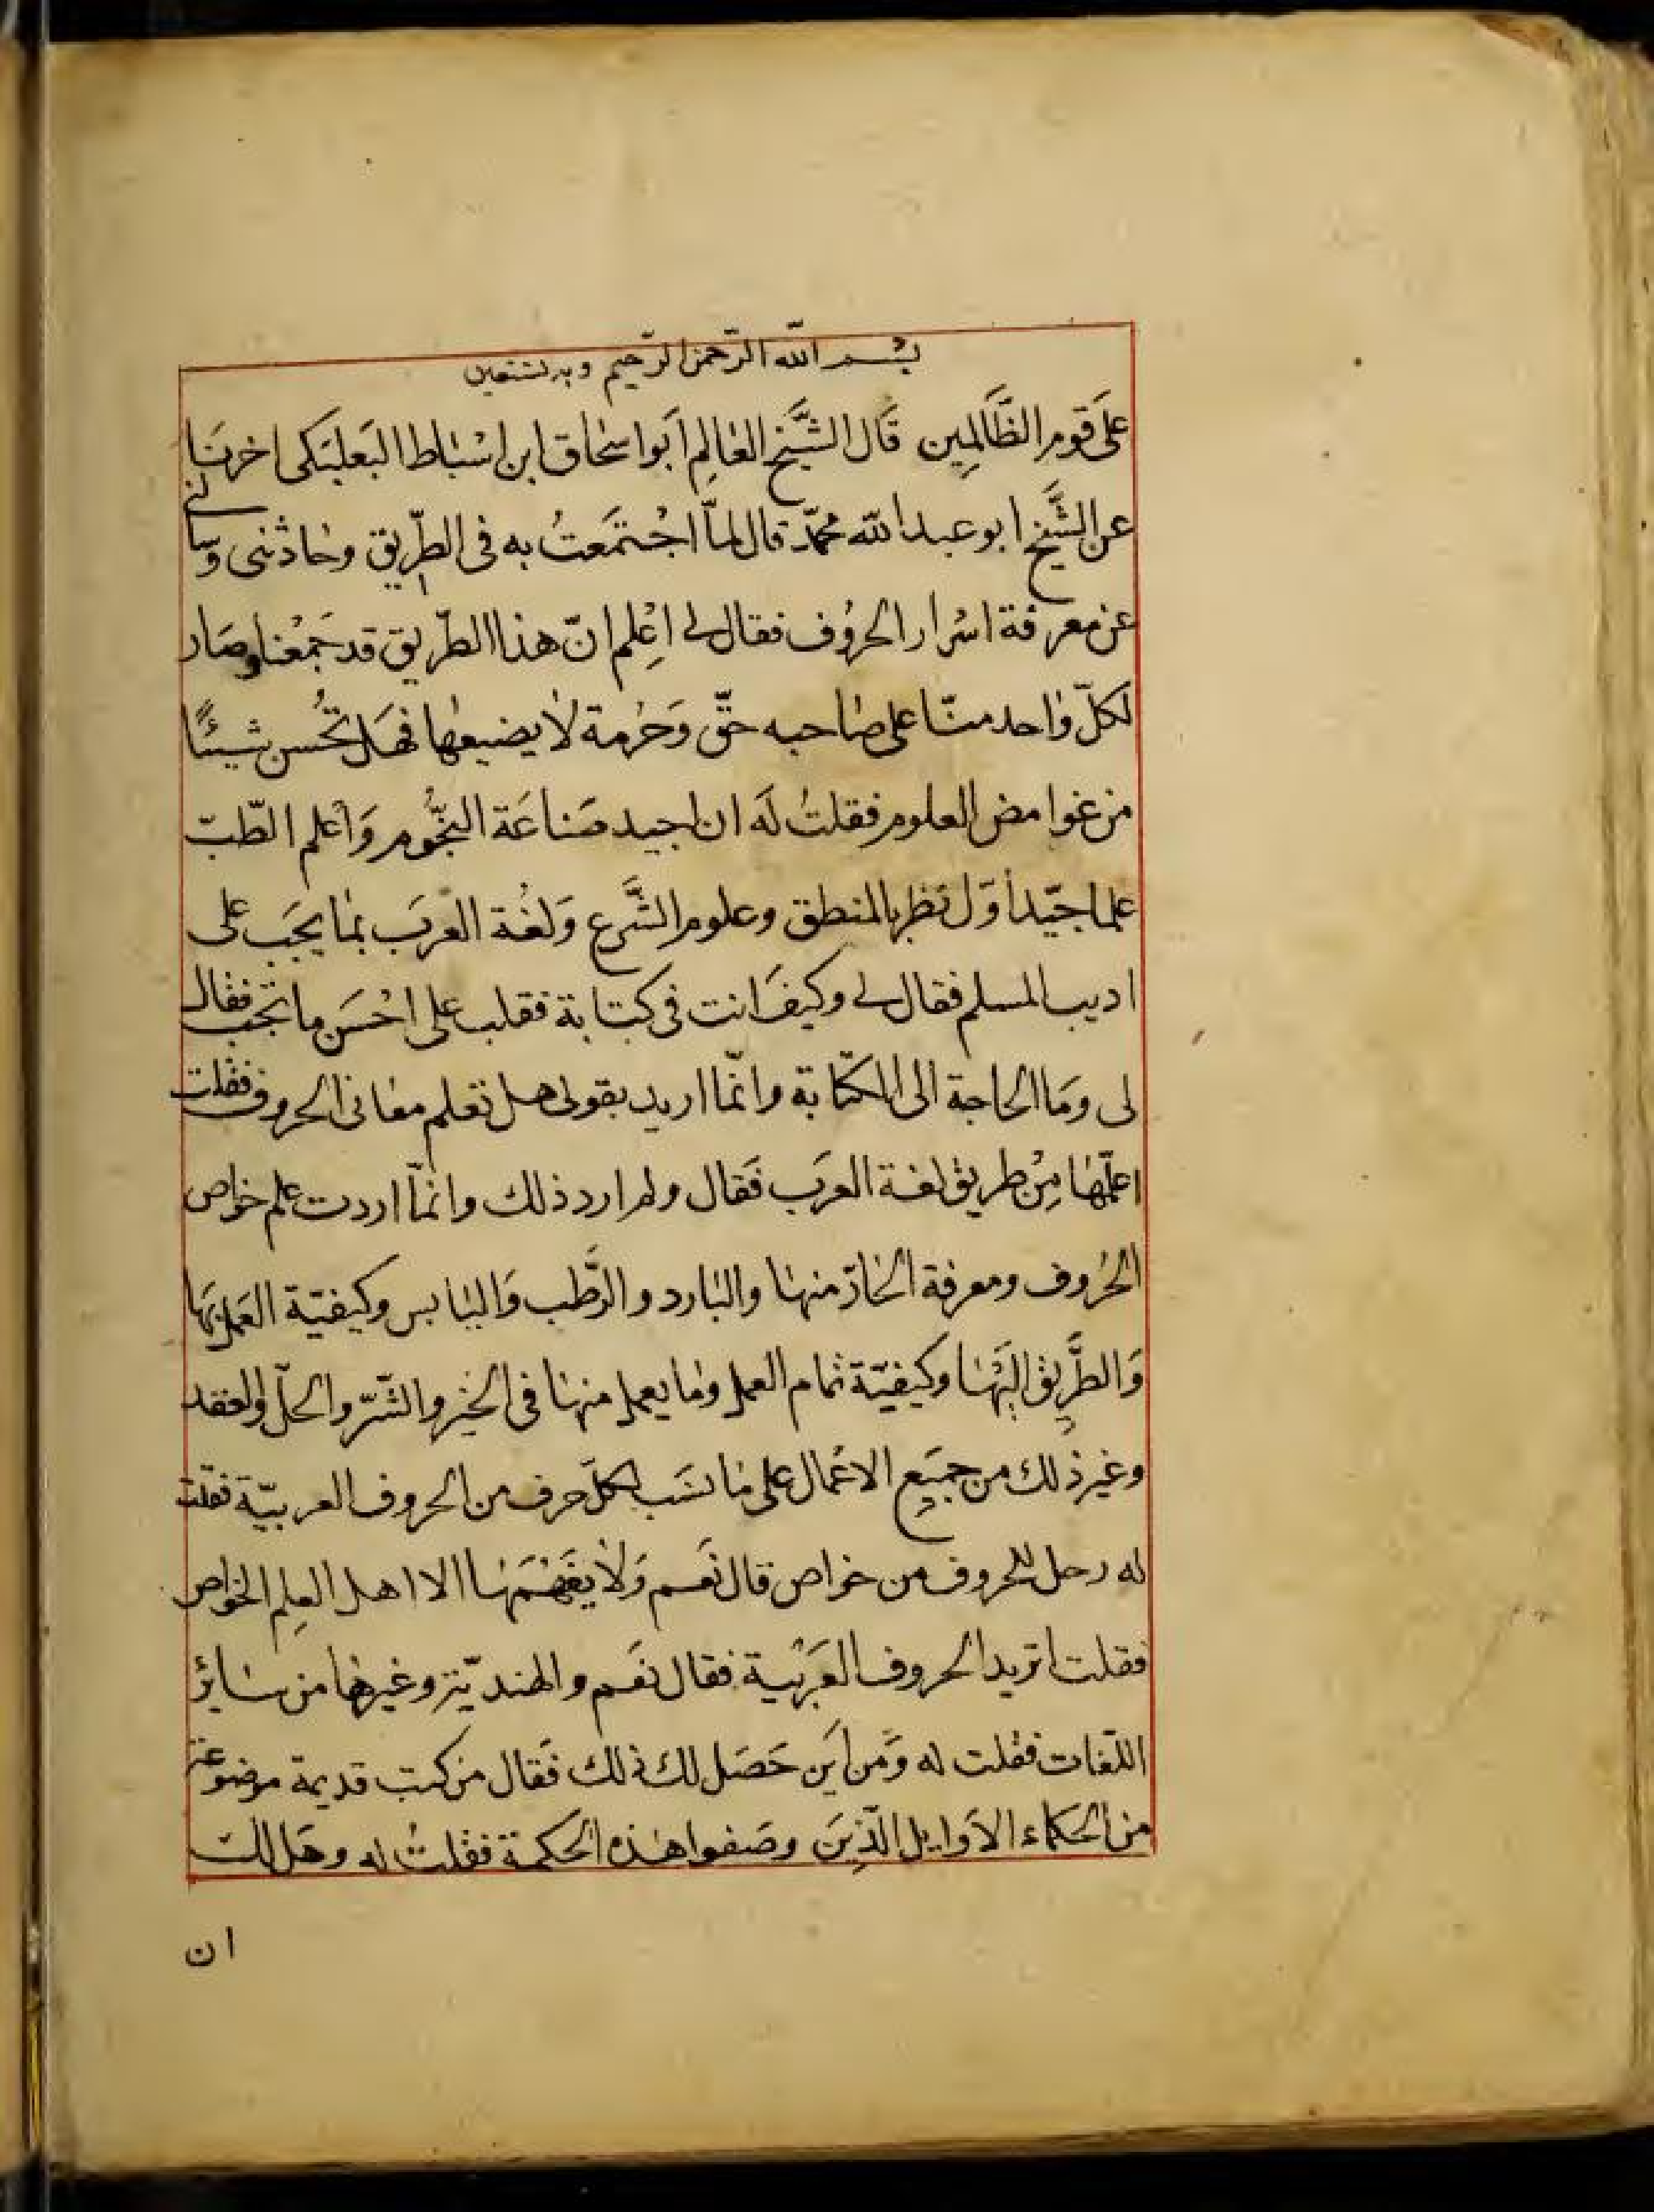 بسم الله الرّحمن الرّحيم وبه نستعين
على قوم الظَّالِمِين قَال الشَّيخ العالِم أبو اسحاق ابن اسْباط البَعلبَكى اخربنا
عن الشَّيخ ابو عبد الله محمّد قال لمّا اجْتمَعتُ به فى الطِّريق وحادثنى وسالنى
عن معرفة اسْرار الحرُوف فقال لى اعْلِم انّ هذا الطّريق قد جَمعْنا وصَار
لكلّ واحد منّا على صاحبه حقّ وَحُرمة لا يضيعها فهَل تُحُسن شيئًا
من غوامض العلوم فقلتُ لَه ان اجيد صَناعَة النجُّوم وَأعْلم الطّبّ
علما جيّدا وّل نظر بالمنطق وعلوم الشَّرع وَلغُة العَرَب بما يجَب على
اديب المسلم فقال لى وكيفَ انت فى كتابة فقلب على احْسَن ما تجب فقال
لى وَما الحاجة الى الكتابة وانّما اريد بقولى هل تعلم معانى الحروف فقلت
اعلّمها مِنْ طريق لغة العرَب فَقال ولم ارد ذلك وانّما اردت علم خواص
الحُروف ومعرفة الحادّ منها والبارد والرَّطب وَاليابس وكيفيّة العَمل بهَا
وَالطَّرِيق اليْهَا وكيفيّة تمام العمل وما يعمل منها فى الخير والشّرّ والحلّ والعقد
وغير ذلك من جميَع الاعْمال على ما نسَب لكلّ حرف من الحروف العربيّة فقلت
له وحل للحروف من خواص قال نَعَم وَلا يفَهْمَها الا اهل العِلِم الخواص
فقلت اتريد الحروف العَرَبْية فقال نعَم والهنديّة وغيرها من سايْر
اللّغات فقلت له وَمن اَيَن حَصَل لك ذلك فَقال من كتب قديمة موضوعة
من الحكماء الاَوايل الّذِينَ وصَفوا هذه الحكمة فقلتُ له وهَل لك
ان